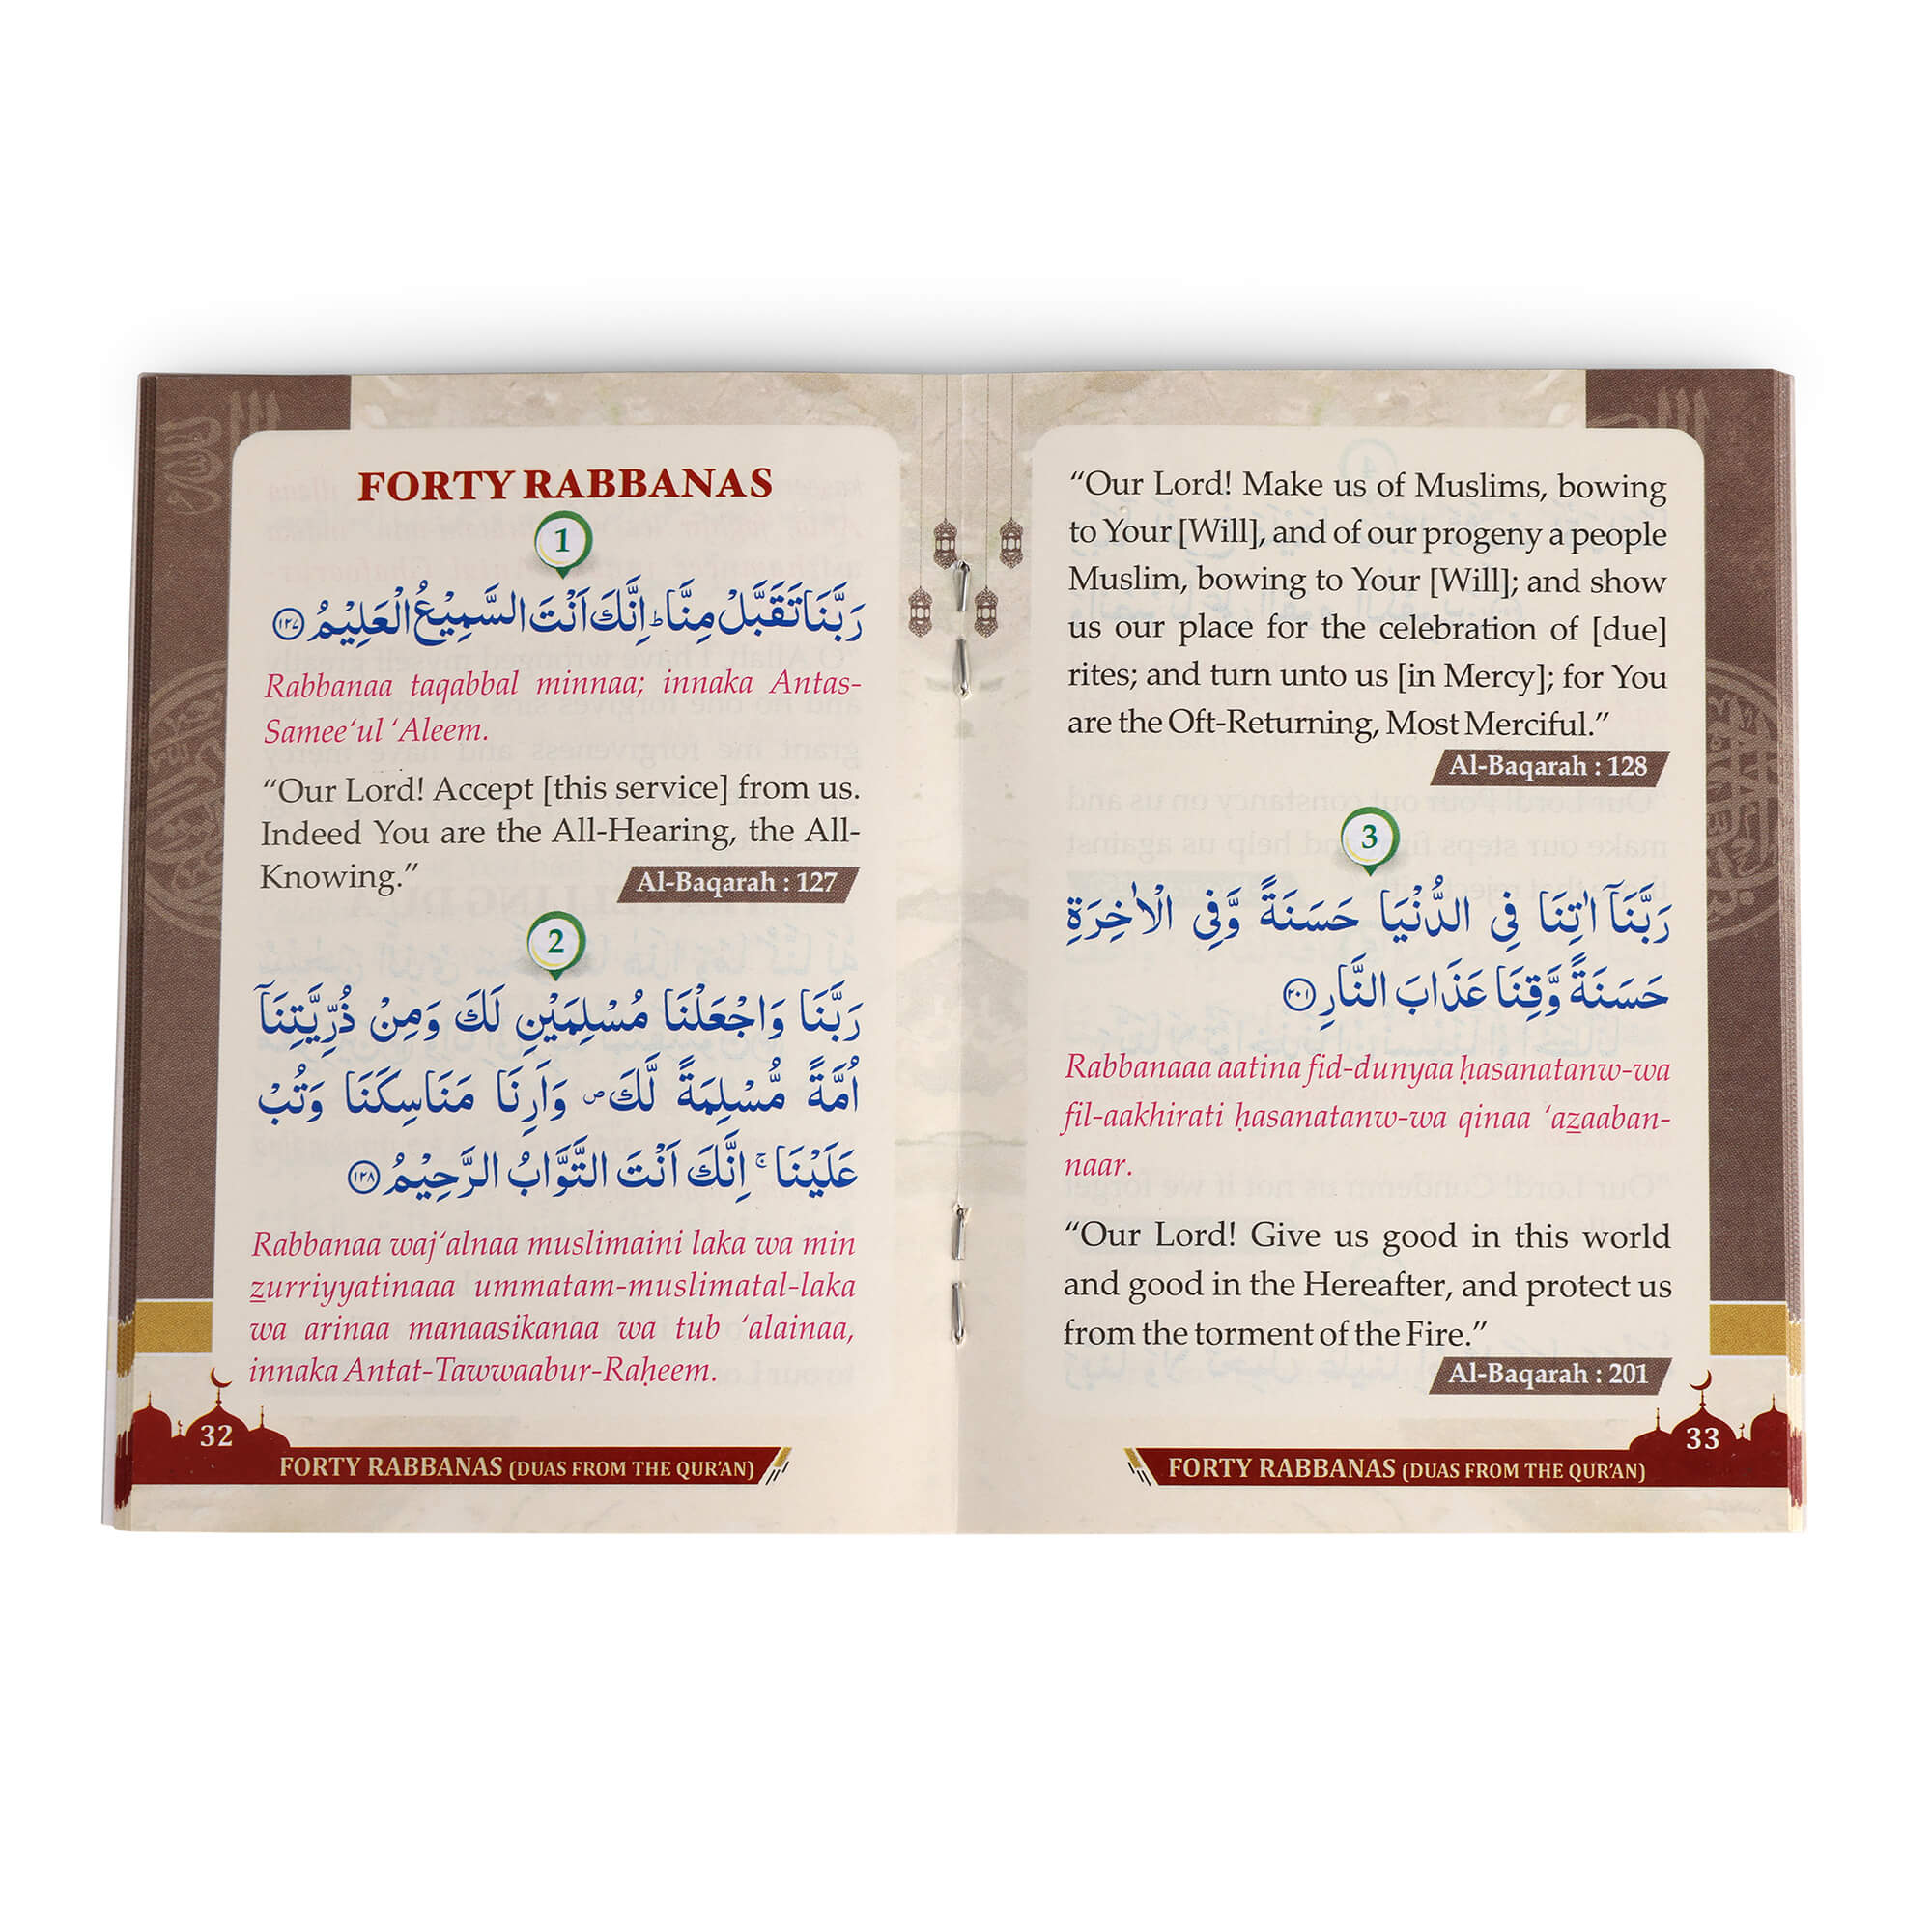 FORTY RABBANAS
1
رَبَّنَا تَقَبَّلْ مِنَّا ؕ اِنَّكَ اَنْتَ السَّمِيْعُ الْعَلِيْمُ ۝۱۲۷
Rabbanaa taqabbal minnaa; innaka Antas-
Samee‘ul ‘Aleem.
“Our Lord! Accept [this service] from us.
Indeed You are the All-Hearing, the All-
Knowing.”
Al-Baqarah : 127
2
رَبَّنَا وَاجْعَلْنَا مُسْلِمَيْنِ لَكَ وَمِنْ ذُرِّيَّتِنَاۤ
اُمَّةً مُّسْلِمَةً لَّكَ ۪ وَاَرِنَا مَنَاسِكَنَا وَتُبْ
عَلَيْنَا ۚ اِنَّكَ اَنْتَ التَّوَّابُ الرَّحِيْمُ ۝۱۲۸
Rabbanaa waj‘alnaa muslimaini laka wa min
zurriyyatinaaa ummatam-muslimatal-laka
wa arinaa manaasikanaa wa tub ‘alainaa,
innaka Antat-Tawwaabur-Raḥeem.
32
FORTY RABBANAS (DUAS FROM THE QUR’AN)
“Our Lord! Make us of Muslims, bowing
to Your [Will], and of our progeny a people
Muslim, bowing to Your [Will]; and show
us our place for the celebration of [due]
rites; and turn unto us [in Mercy]; for You
are the Oft-Returning, Most Merciful.”
Al-Baqarah : 128
3
رَبَّنَاۤ اٰتِنَا فِي الدُّنْيَا حَسَنَةً وَّفِي الْاٰخِرَةِ
حَسَنَةً وَّقِنَا عَذَابَ النَّارِ ۝۲۰۱
Rabbanaaa aatina fid-dunyaa ḥasanatanw-wa
fil-aakhirati ḥasanatanw-wa qinaa ‘azaaban-
naar.
“Our Lord! Give us good in this world
and good in the Hereafter, and protect us
from the torment of the Fire.”
Al-Baqarah : 201
33
FORTY RABBANAS (DUAS FROM THE QUR’AN)